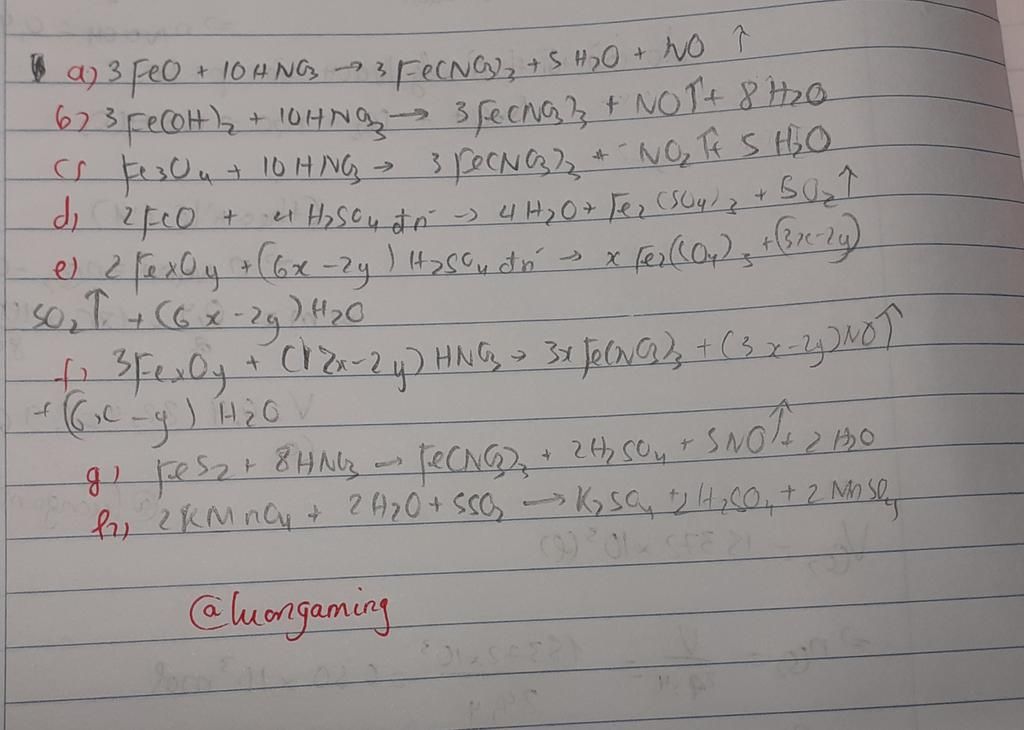 a) 3 FeO + 10 HNO3 → 3 Fe(NO3)3 + 5 H2O + NO ↑
b) 3 Fe(OH)2 + 10HNO3 → 3Fe(NO3)3 + NO↑ + 8 H2O
c) Fe3O4 + 10 HNO3 → 3 Fe(NO3)3 + NO2 ↑ + 5 H2O
d) 2 FeO + 4 H2SO4 đn → 4 H2O + Fe2(SO4)3 + SO2↑
e) 2 FexOy + (6x-2y) H2SO4 đn → x Fe2(SO4)3 + (3x-2y)
SO2↑ + (6x-2y) H2O
f) 3FexOy + (12x-2y) HNO3 → 3x Fe(NO3)3 + (3x-2y)NO↑
+ (6x-y) H2O
g) FeS2 + 8HNO3 → Fe(NO3)3 + 2H2SO4 + 5NO↑ + 2 H2O
h) 2KMnO4 + 2H2O + 5SO2 → K2SO4 + 2H2SO4 + 2MnSO4
@luongaming